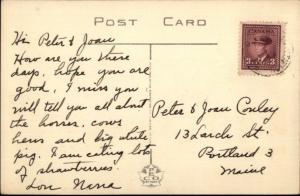 POST CARD
Hi Peter & Joan
How are you these
days, hope you are
good, I miss you
will tell you all about
the horses, cows
hens and big white
pig. I am eating lots
of strawberries.
Love Nana
CANADA
3 3
Peter & Joan Conley
13 Larch St.
Portland 3
Maine